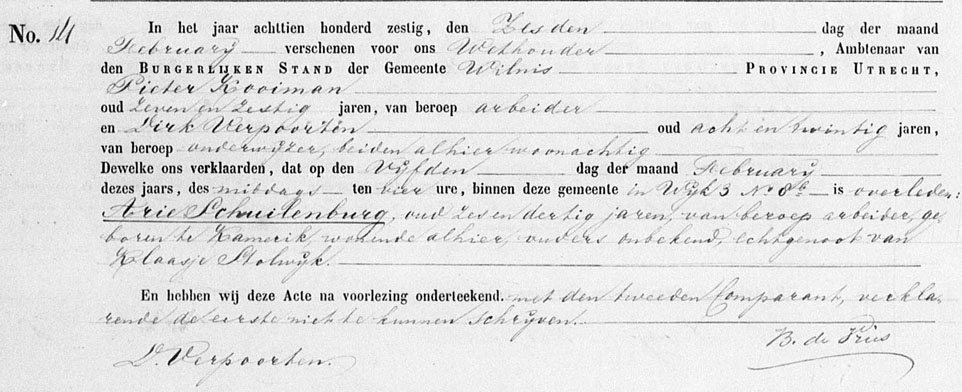 No. 14 In het jaar achttien honderd zestig, den Zesden dag der maand
February verschenen voor ons Wethouder, Ambtenaar van
den Burgerlijken Stand der Gemeente Wilnis Provincie Utrecht,
Pieter Kooiman
oud zeven en zestig jaren, van beroep arbeider
en Dirk Verpoorten oud acht en twintig jaren,
van beroep onderwijzer, beiden alhier woonachtig
Dewelke ons verklaarden, dat op den Vyfden dag der maand February
dezes jaars, des middags ten vier ure, binnen deze gemeente in Wyk 3 No 8b is overleden:
Arie Schuilenburg, oud zes en dertig jaren, van beroep arbeider, ge-
boren te Kamerik, wonende alhier, ouders onbekend, echtgenoot van
Klaasje Stolwyk.
En hebben wij deze Acte na voorlezing onderteekend. met den tweeden Comparant, verkla-
rende de eerste niet te kunnen schryven.
B. de Vries
D. Verpoorten.